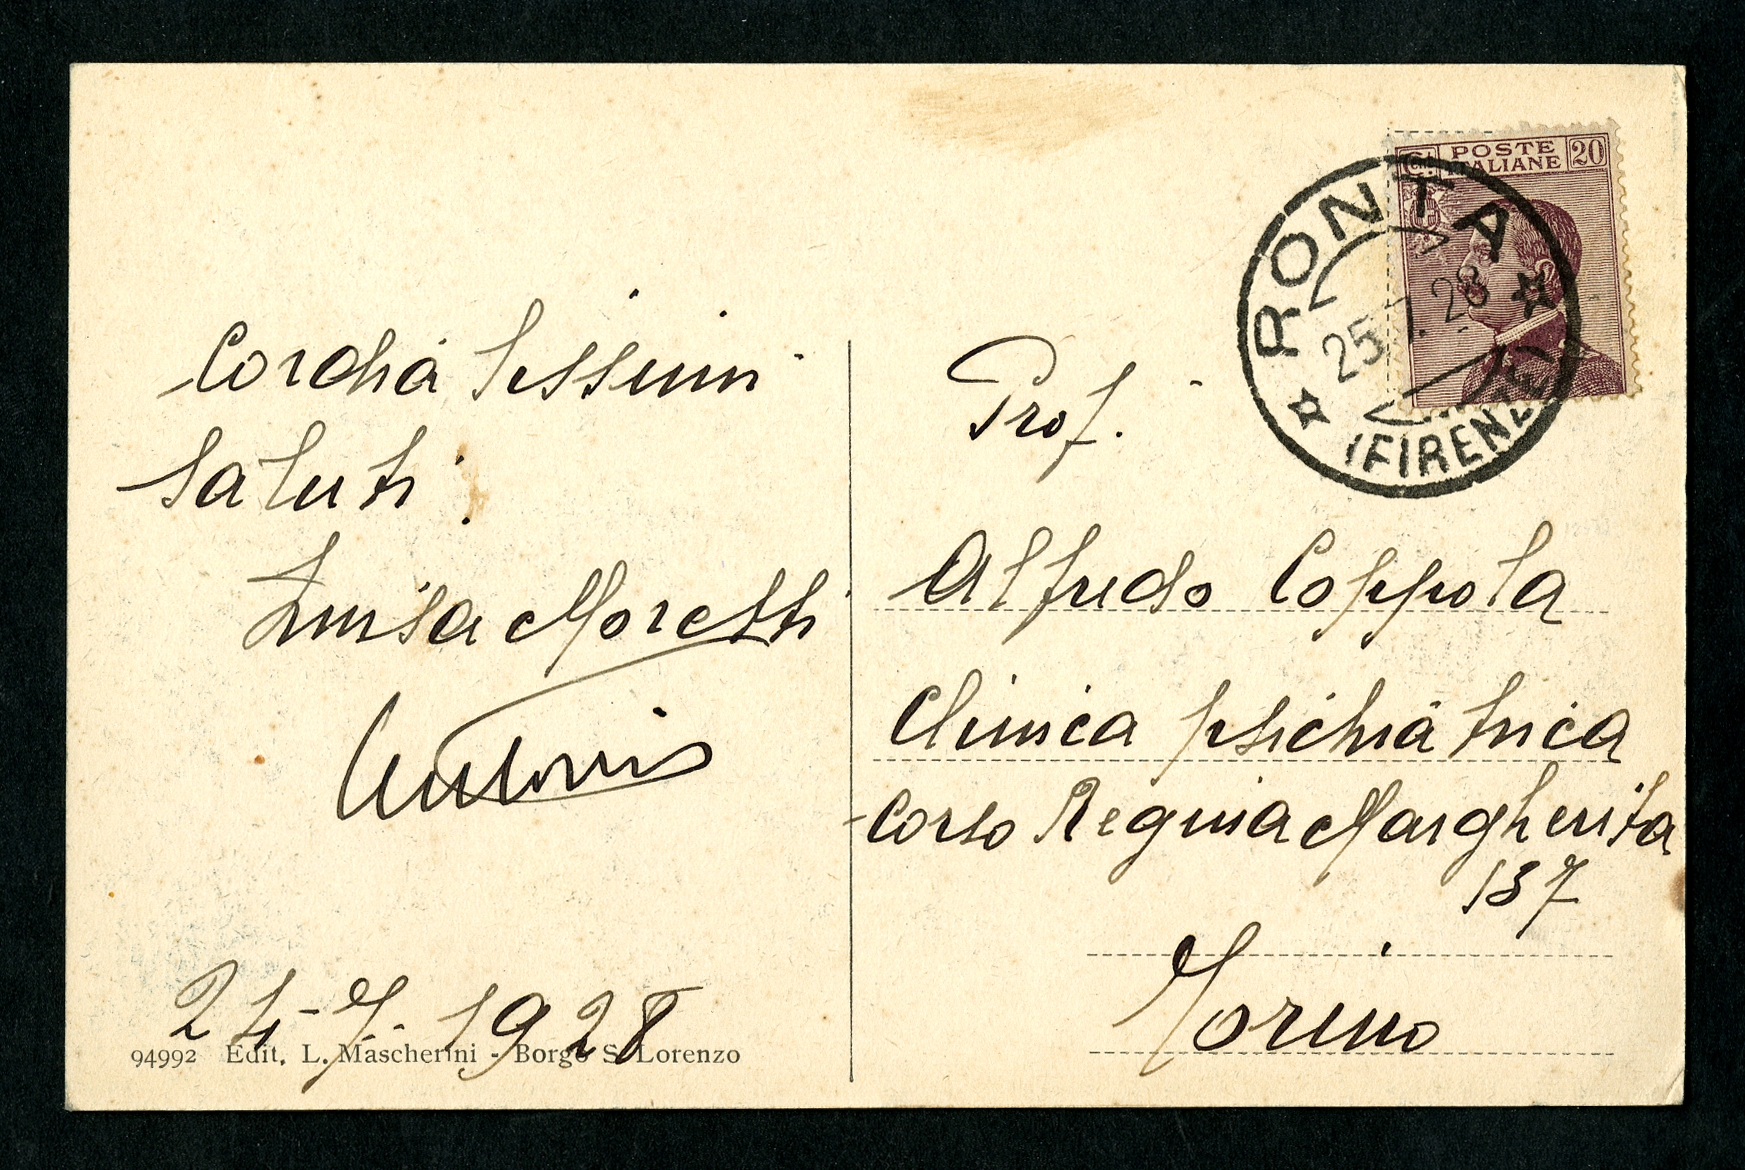 Cordialissimi
Saluti.
Luisa Moretti
Antonio
24-7-1928
94992 Edit. L. Mascherini - Borgo S. Lorenzo
POSTE
ITALIANE
Ct. 20
RONTA
25.7.28
(FIRENZE)
Prof.
Alfredo Coppola
Clinica psichiatrica
Corso Regina Margherita
137
Torino